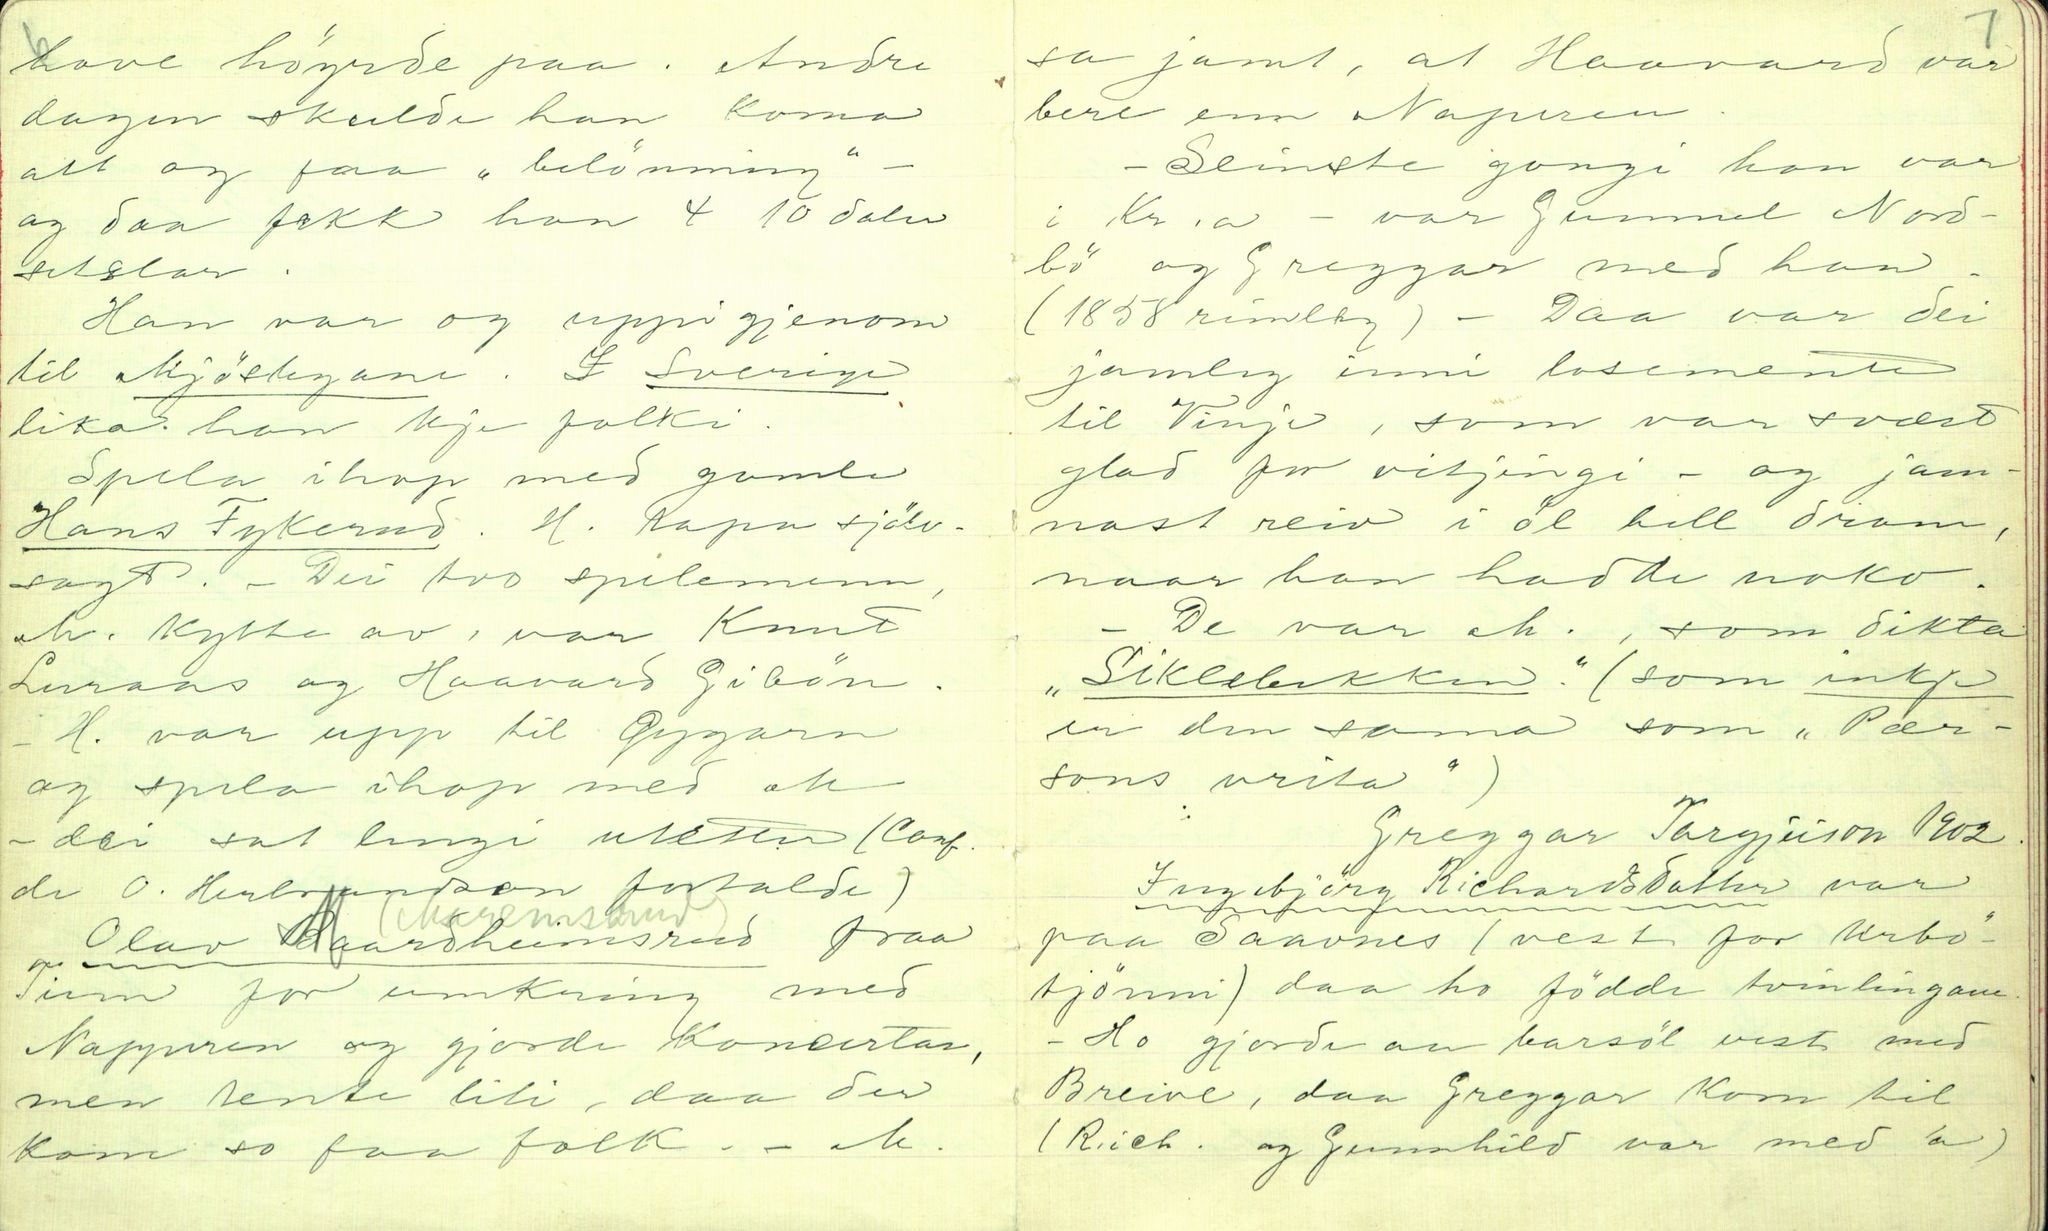 hove höyrde paa. Andre
dagen skulde han koma
att og faa „belönning“ –
og daa fekk han 4 10 daler
setelar.
Han var og uppigjenom
til Mjöstegane. I Sverige
lika han kje folki.
Spela ihop med gamle
Hans Fykerud. H. Rapa sjölv-
sagt. – Dei tvo spelemenn,
M. kytte av, var Knut
Luraas og Haavard Gibön.
– H. var upp til Gygarn
og spela ihop med M
– dei sat lengi utetter (Conf.
de O. Herbrandson fortalde)
(Maremsrud)
Olav Maardheimsrud fraa
Tinn for umkring med
Nappuren og gjorde koncertar,
men tente liti, daa der
kom so faa folk. – M.
7
sa jamt, at Haavard var
bere enn Napuren.
– Seinste gongi han var
i Kr.a – var Gunnul Nord-
bö og Greggar med han –
(1858 rimleg) – Daa var dei
jamleg inni losemente
til Vinje, som var svært
glad for vitjingi – og jam-
nast reiv i öl hell dram,
naar han hadde noko.
– De var M., som dikta
„Siklebekken“ (som inkje
er den sama som „Pær-
sons vrita“)
Greggar Targjeison 1902.
Ingebjörg Richardsdatter var
paa Saavnes (vest for Urbö-
tjönni) daa ho födde tvinlingane.
– Ho gjorde au barsöl vest med
Breive, daa Greggar kom til
(Rich. og Gunnhild var med 'a)